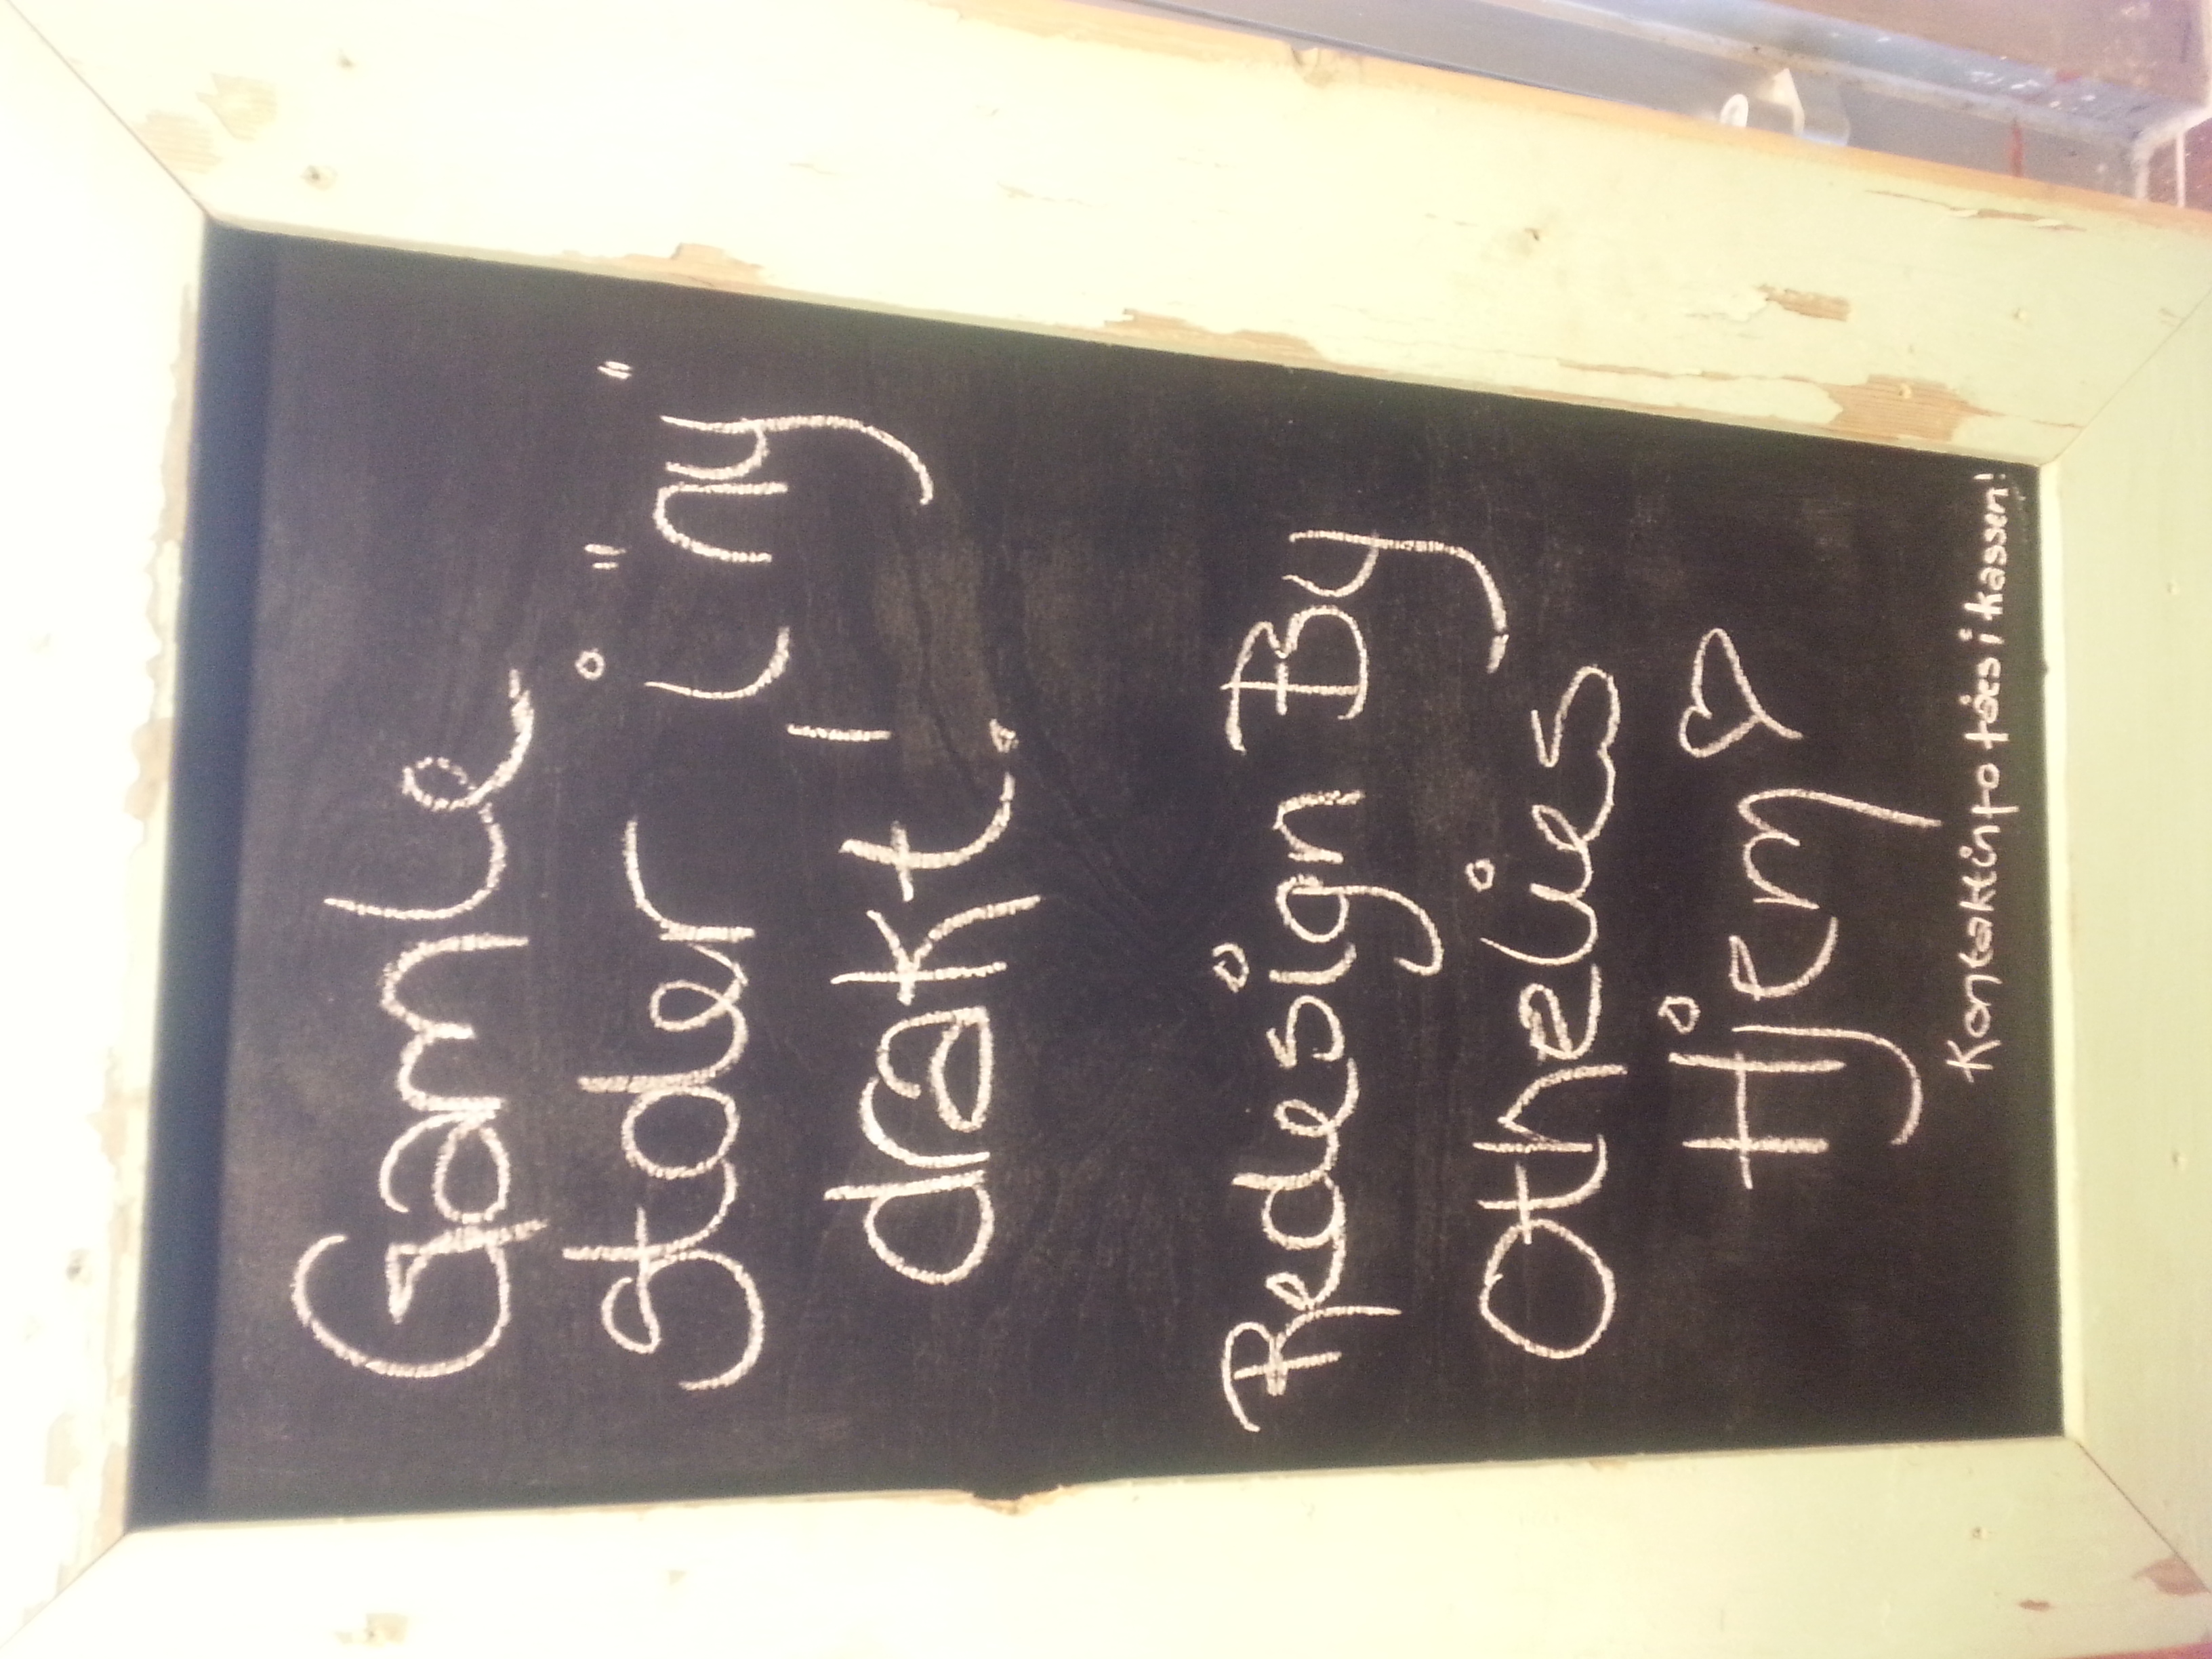 Gamle
stoler i "ny"
drakt.
Redesign By
Othelies
Hjem ♡
Kontaktinfo fåes i kassen!